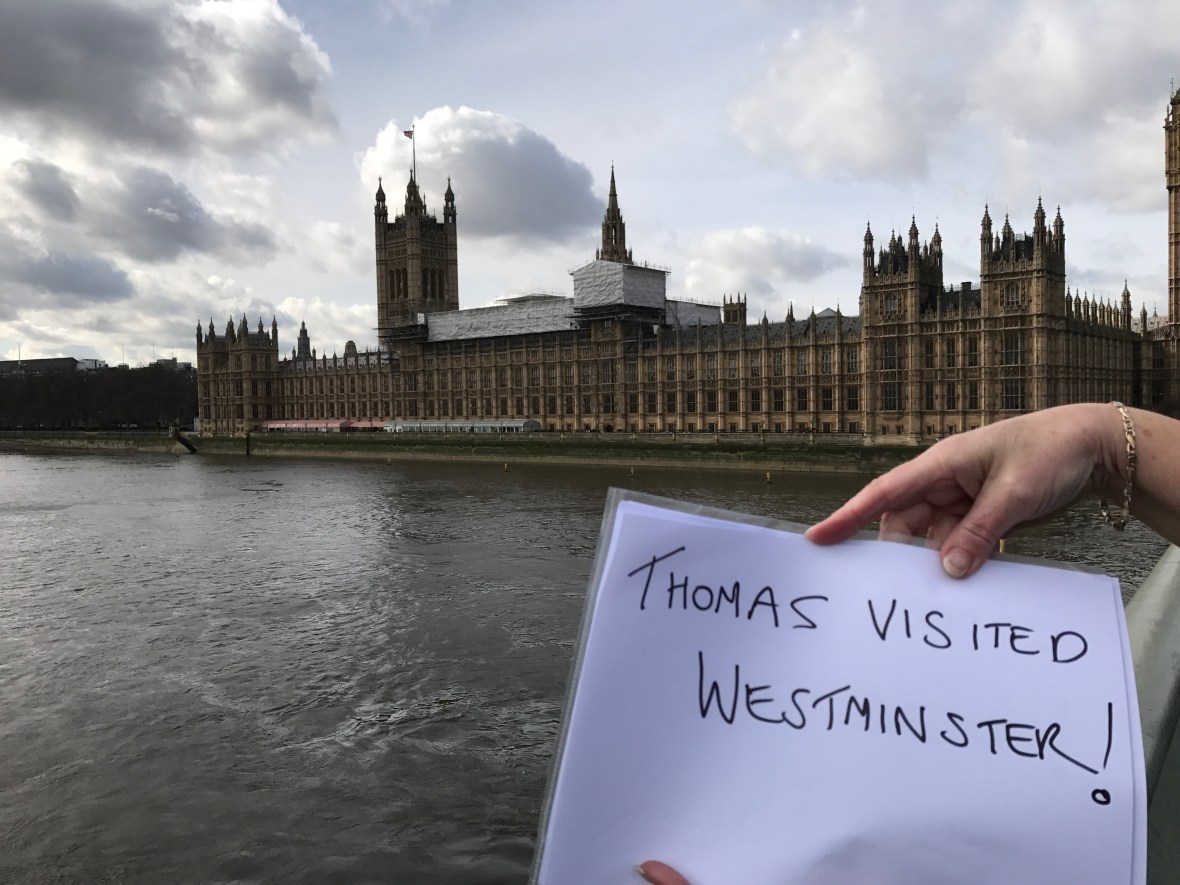 THOMAS VISITED
WESTMINSTER!